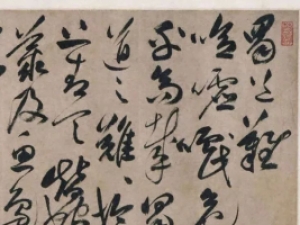 蜀道難
噫嘘嚱危
乎高哉蜀
道之難難於
上青天蠶
叢及魚鳧